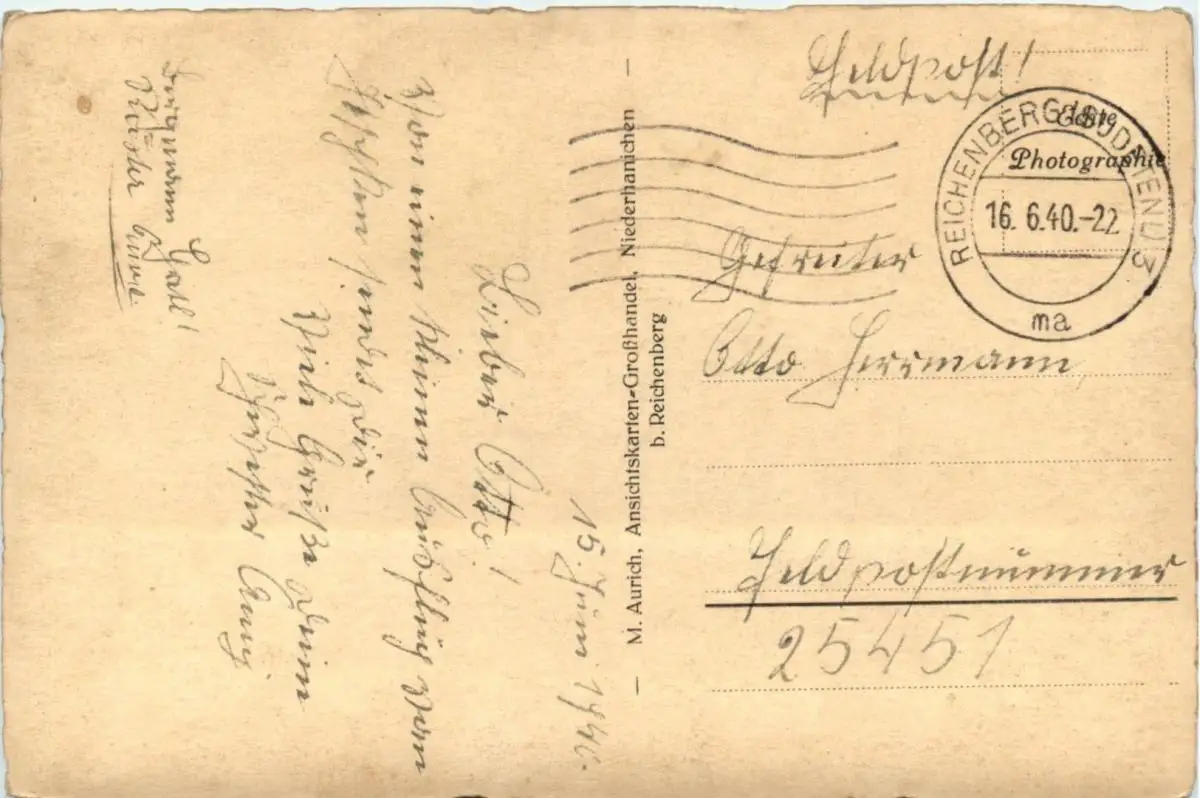 15. Juni 1940.
Lieber Otto!
Von einem kleinen Ausflug vom
Jeschken sendet dir
Viele Grüße deine
Schwester Anni
Bergmann Heil!
M. Aurich, Ansichtskarten-Großhandel, Niederhanichen
b. Reichenberg
Feldpost!
Echte
Photographie
REICHENBERG (SUDETENL) 3
16. 6.40.-22
ma
Gefreiter
Otto Herrmann
Feldpostnummer
25451